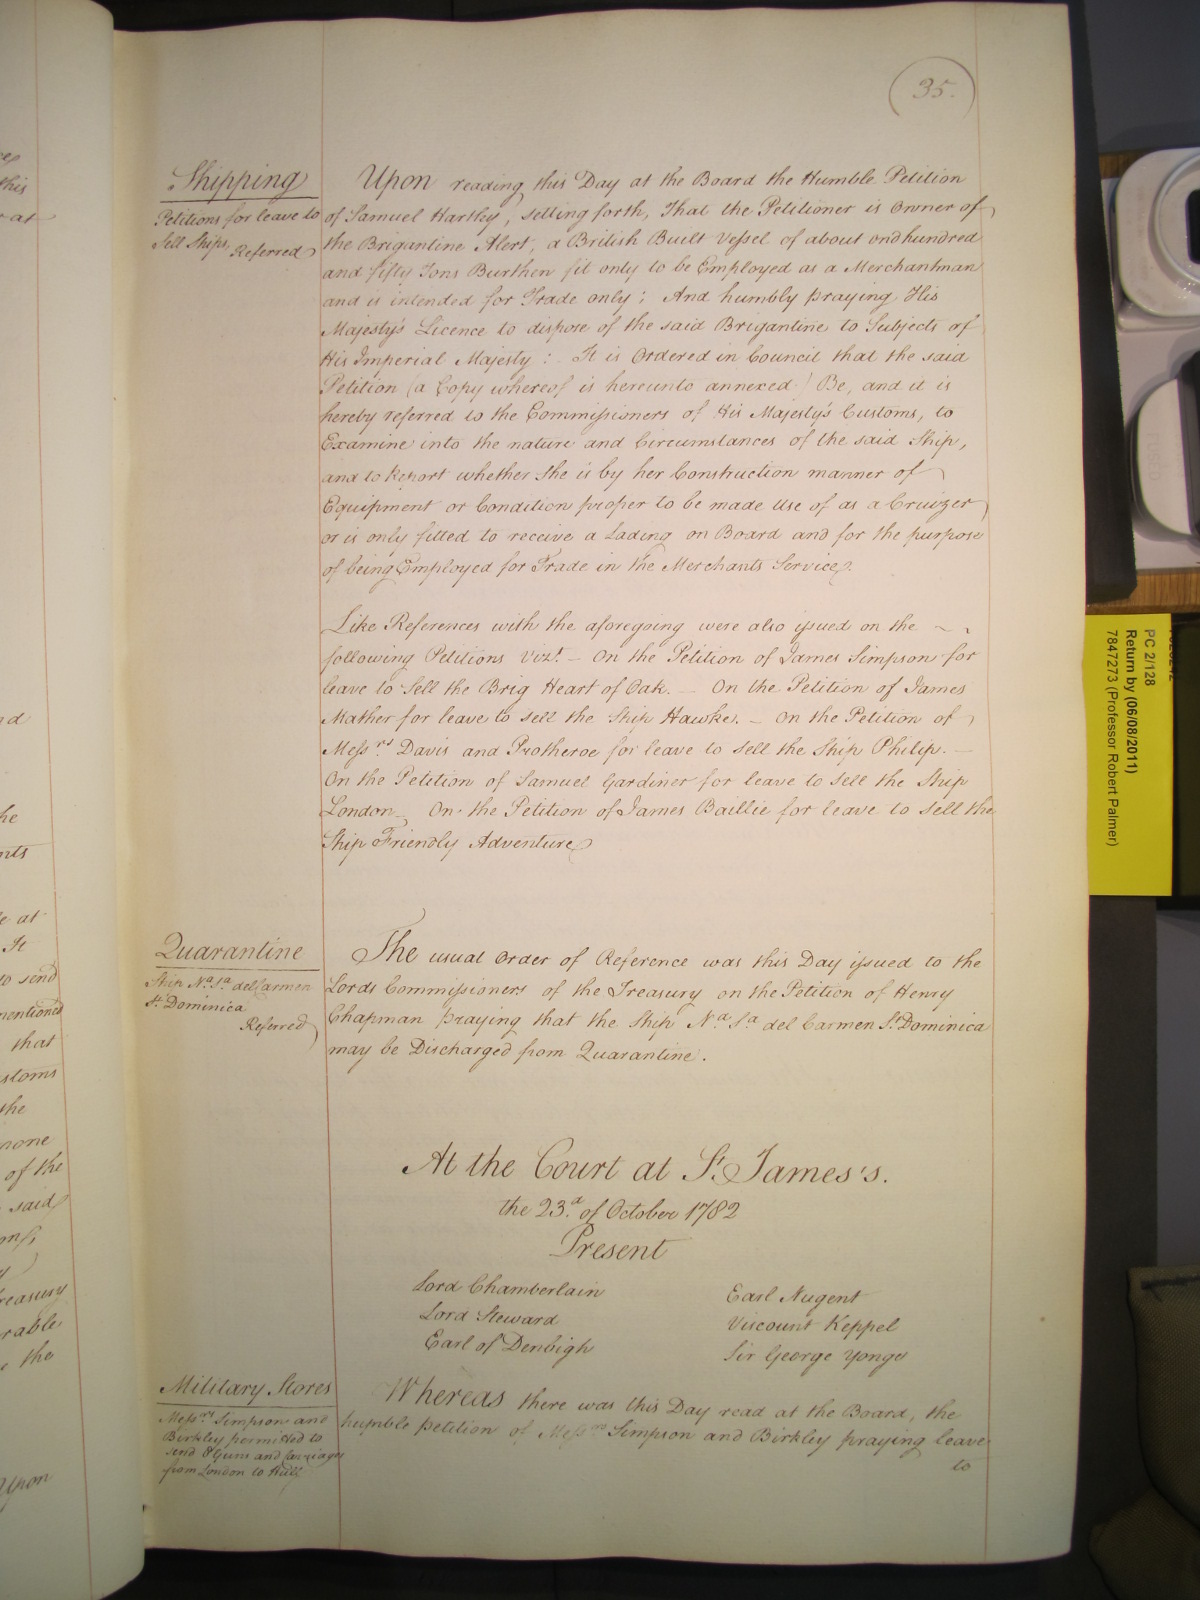 35.
Shipping
Petitions for leave to
Sell Ships,
Referred
Upon reading this Day at the Board the Humble Petition
of Samuel Hartley, setting forth, That the Petitioner is Owner of
the Brigantine Alert, a British Built Vessel of about one hundred
and fifty Tons Burthen fit only to be Employed as a Merchantman
and is intended for Trade only; And humbly praying His
Majesty's Licence to dispose of the said Brigantine to Subjects of
His Imperial Majesty: It is Ordered in Council that the said
Petition (a Copy whereof is hereunto annexed) Be, and it is
hereby referred to the Commissioners of His Majesty's Customs, to
Examine into the nature and Circumstances of the said Ship,
and to Report whether She is by her Construction manner of
Equipment or Condition proper to be made Use of as a Cruizer
or is only fitted to receive a Lading on Board and for the purpose
of being Employed for Trade in the Merchants Service.
Like References with the aforegoing were also issued on the
following Petitions Vizt. - On the Petition of James Simpson for
leave to Sell the Brig Heart of Oak. - On the Petition of James
Mather for leave to sell the Ship Hawke. - On the Petition of
Messrs Davis and Protheroe for leave to Sell the Ship Philip. -
On the Petition of Samuel Gardiner for leave to Sell the Ship
London - On the Petition of James Baillie for leave to Sell the
Ship Friendly Adventure
Quarantine
Ship Na. Sa. del Carmen
St. Dominica
Referred
The usual Order of Reference was this Day issued to the
Lords Commissioners of the Treasury on the Petition of Henry
Chapman praying that the Ship Na. Sa. del Carmen St. Dominica
may be Discharged from Quarantine.
At the Court at St. James's.
the 23.d of October 1782
Present
Lord Chamberlain
Lord Steward
Earl of Denbigh
Earl Nugent
Viscount Keppel
Sir George Yonge
Military Stores
Messrs Simpson and
Birkley permitted to
send 8 Guns and Carriages
from London to Hull
Whereas there was this Day read at the Board, the
humble petition of Messrs Simpson and Birkley praying leave
to
PC 2/128
Return by (06/08/2011)
7847273 (Professor Robert Palmer)
this
at
nd
he
nts
at
It
to send
mentioned
that
the
none
of the
said
the
Upon